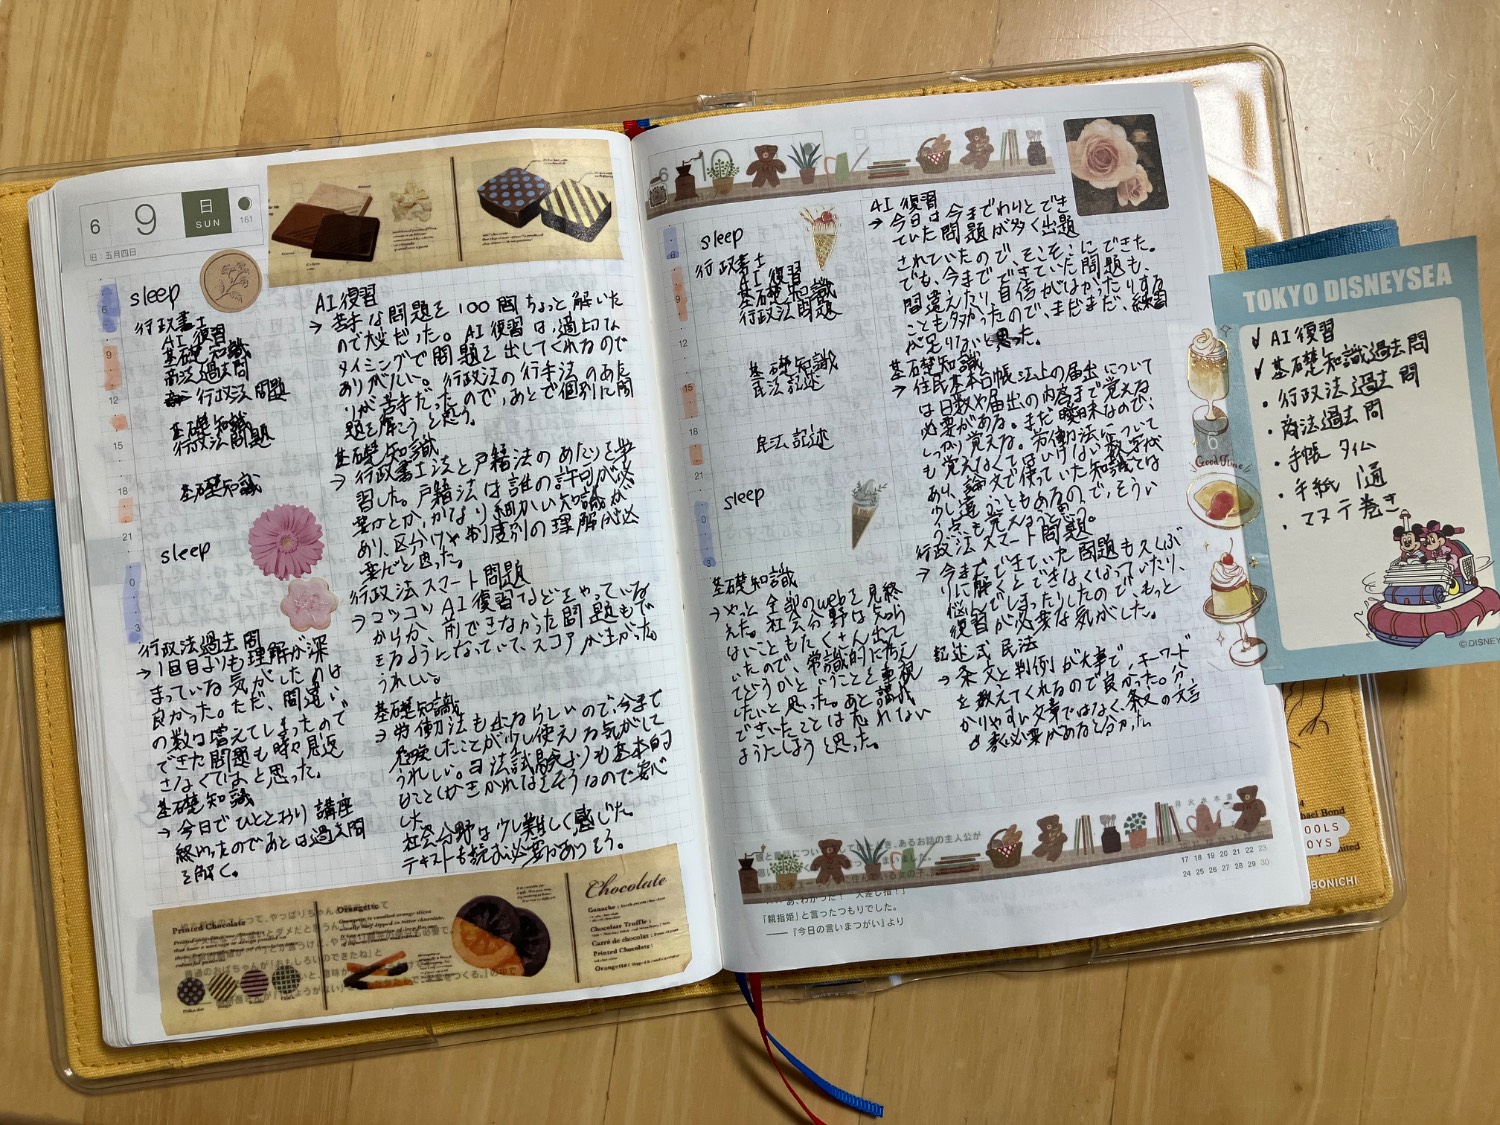 6 9 日 SUN
161
旧:五月四日
sleep
行政書士
AI復習
基礎知識
商法過去問
行政法問題
基礎知識
行政法問題
基礎知識
sleep
6
9
12
15
18
21
0
3
行政法過去問
→ 1回目よりも理解が深
まっている気がしたのは
良かった。ただ、間違い
の数は増えてしまったので
できた問題も時々見返
さなくてはと思った。
基礎知識
→ 今日でひととおり講座
終わったのであとは過去問
を解く。
AI復習
→ 苦手な問題を100問ちょっと解いた
ので大変だった。AI復習は、適切な
タイミングで問題を出してくれるので
ありがたい。行政法の行手法のあた
りが苦手だったので、あとで個別に問
題を解こうと思う。
基礎知識
→ 行政書士法と戸籍法のあたりを学
習した。戸籍法は誰の許可が必
要かとか、かなり細かい知識が
あり、区分けや制度別の理解が必
要だと思った。
行政法スマート問題
→ コツコツAI復習などをやっている
からか、前できなかった問題もで
きるようになっていて、スコアが上がった。
うれしい。
基礎知識
→ 労働法も出るらしいので、今まで
勉強したことが少し使える気がして
うれしい。司法試験よりも基本的
なことしかきかれなさそうなので安心
した。
社会分野は少し難しく感じた。
テキストも読む必要がありそう。
Printed Chocolate
Orangette
Chocolate
Ganache
Chocolate Truffle
Carré de chocolat
Printed Chocolat
Orangette
sleep
行政書士
AI復習
基礎知識
行政法問題
基礎知識
民法記述
民法記述
sleep
6
9
12
15
18
21
0
3
基礎知識
→ やっと全部のwebを見終
えた。社会分野は知ら
ないこともたくさん出て
いたので、常識的に考え
てどうかということを重視
したいと思った。あと講義
できいたことは忘れない
ようにしようと思った。
AI復習
→ 今日は今までわりとでき
ていた問題が多く出題
されていたので、そこそこにできた。
でも、今までできていた問題も、
間違えたり、自信がなかったりする
ことも多かったので、まだまだ、練習
が足りないと思った。
基礎知識
→ 住民基本台帳法上の届出について
は日数や届出の内容まで覚える
必要がある。まだ曖昧なので、
しっかり覚える。労働法について
も覚えなくてはいけない数字が
あり、論文で使っていた知識とは
少し違うこともあるので、そうい
う点も覚えようと思う。
行政法スマート問題
→ 今までできていた問題も久しぶ
りに解くとできなくなっていたり、
悩んでしまったりしたので、もっと
復習が必要な気がした。
記述式 民法
→ 条文と判例が大事で、キーワード
を教えてくれるので良かった。分
かりやすい文章ではなく、条文の文言
を書く必要があると分かった。
「親指姫」と言ったつもりでした。
――『今日の言いまつがい』より
17 18 19 20 21 22 23
24 25 26 27 28 29 30
TOKYO DISNEYSEA
✓ AI復習
✓ 基礎知識過去問
・行政法過去問
・商法過去問
・手帳タイム
・手紙 1通
・マステ巻き
Good time
© DISNEY